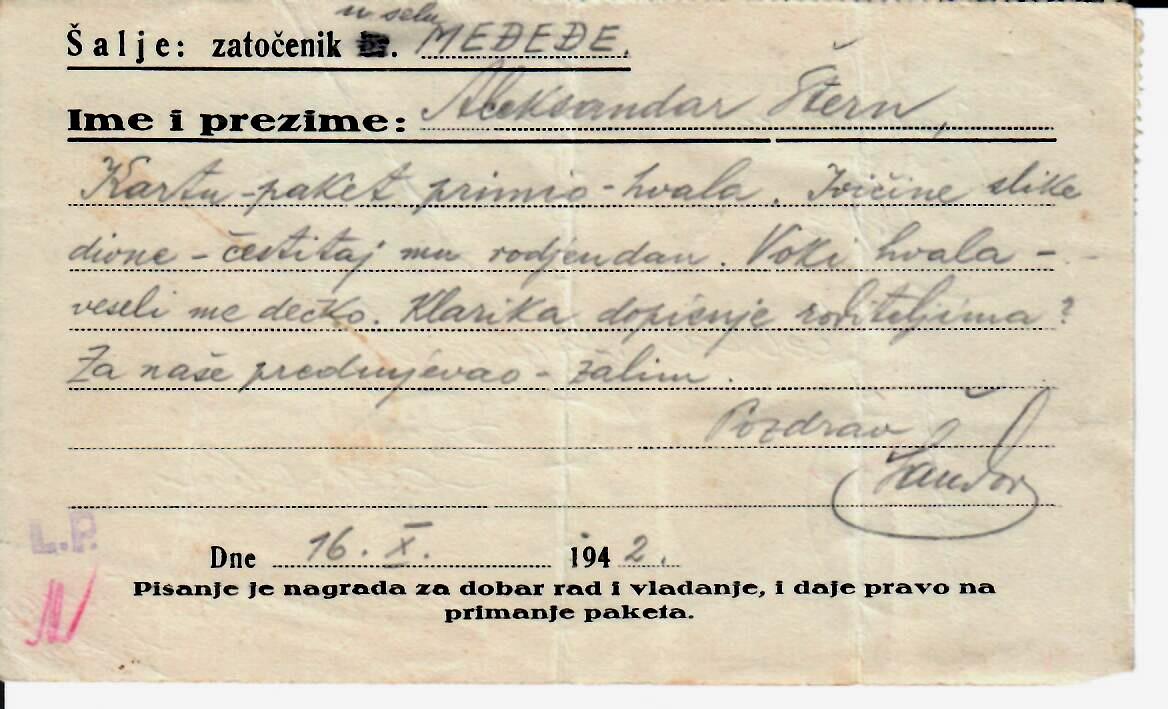 u selu
Šalje: zatočenik MEĐEĐE.
Ime i prezime: Aleksandar Štern,
Kartu-paket primio-hvala. Ivičine slike
divne - čestitaj mu rodjendan. Voki hvala -
veseli me dečko. Klarika dopisuje roditeljima?
Za naše predmjevao - žalim.
Pozdrav
Šandor
L.P.
Dne 16. X. 1942.
Pisanje je nagrada za dobar rad i vladanje, i daje pravo na
primanje paketa.